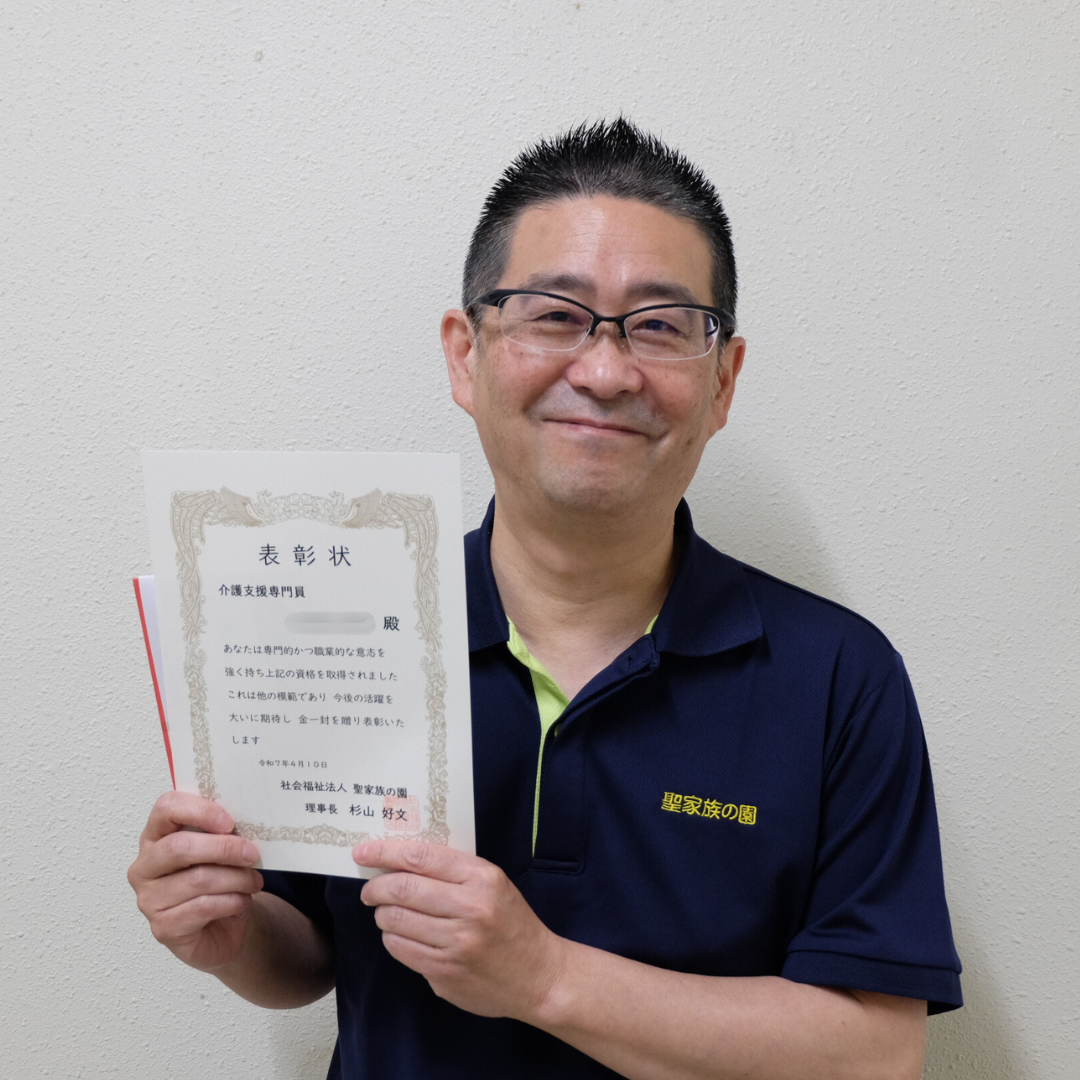 表彰状
介護支援専門員
殿
あなたは専門的かつ職業的な意志を
強く持ち上記の資格を取得されました
これは他の模範であり 今後の活躍を
大いに期待し 金一封を贈り表彰いた
します
令和7年6月10日
社会福祉法人 聖家族の園
理事長 杉山 好文
聖家族の園